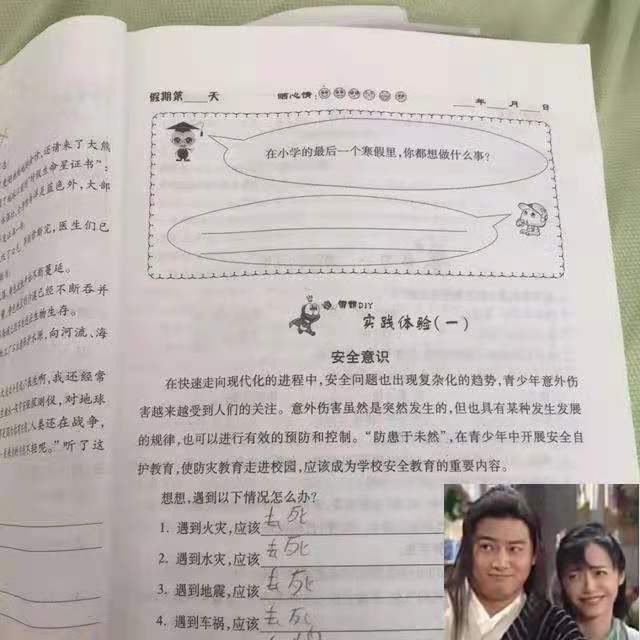 还请来了大熊
蓝色外，大部
医生们已
不断蔓延。
已经不断吞并
生物生存。
向河流、海
我还经常
对地球
人类还在战争，
呢。”听了这
假期第 天 晒心情： 年 月 日
在小学的最后一个寒假里，你都想做什么事？
DIY 实践体验（一）
安全意识
在快速走向现代化的进程中，安全问题也出现复杂化的趋势，青少年意外伤
害越来越受到人们的关注。意外伤害虽然是突然发生的，但也具有某种发生发展
的规律，也可以进行有效的预防和控制。“防患于未然”，在青少年中开展安全自
护教育，使防灾教育走进校园，应该成为学校安全教育的重要内容。
想想，遇到以下情况怎么办？
1. 遇到火灾，应该去死
2. 遇到水灾，应该去死
3. 遇到地震，应该去死
4. 遇到车祸，应该去死